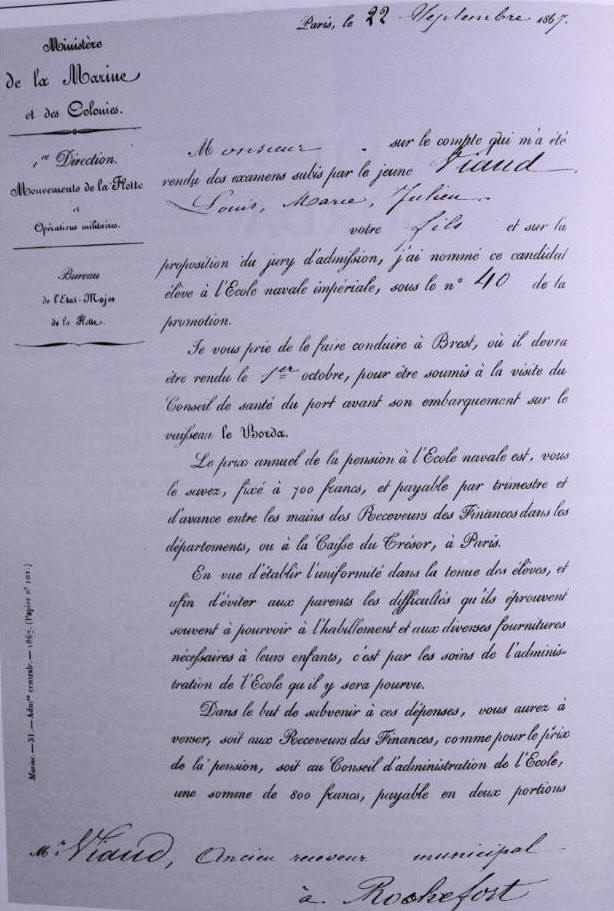 Paris, le 22 Septembre 1867.
Ministère
de la Marine
et des Colonies.
1re Direction.
Mouvements de la Flotte
et
Opérations militaires.
Bureau
de l'Etat-Major
de la Flotte.
Monsieur, sur le compte qui m'a été
rendu des examens subis par le jeune Viaud
Louis, Marie, Julien
votre fils et sur la
proposition du jury d'admission, j'ai nommé ce candidat
élève à l'Ecole navale impériale, sous le n° 40 de la
promotion.
Je vous prie de le faire conduire à Brest, où il devra
être rendu le 1er octobre, pour être soumis à la visite du
Conseil de santé du port avant son embarquement sur le
vaisseau le Borda.
Le prix annuel de la pension à l'Ecole navale est, vous
le savez, fixé à 700 francs, et payable par trimestre et
d'avance entre les mains des Receveurs des Finances dans les
départements, ou à la Caisse du Trésor, à Paris.
En vue d'établir l'uniformité dans la tenue des élèves, et
afin d'éviter aux parents les difficultés qu'ils éprouvent
souvent à pourvoir à l'habillement et aux diverses fournitures
nécessaires à leurs enfants, c'est par les soins de l'adminis-
tration de l'Ecole qu'il y sera pourvu.
Dans le but de subvenir à ces dépenses, vous aurez à
verser, soit aux Receveurs des Finances, comme pour le prix
de la pension, soit au Conseil d'administration de l'Ecole,
une somme de 800 francs, payable en deux portions
Marine.—31.—Admon centrale.—1867. (Papier n° 101.)
Mr Viaud, Ancien receveur municipal
à Rochefort